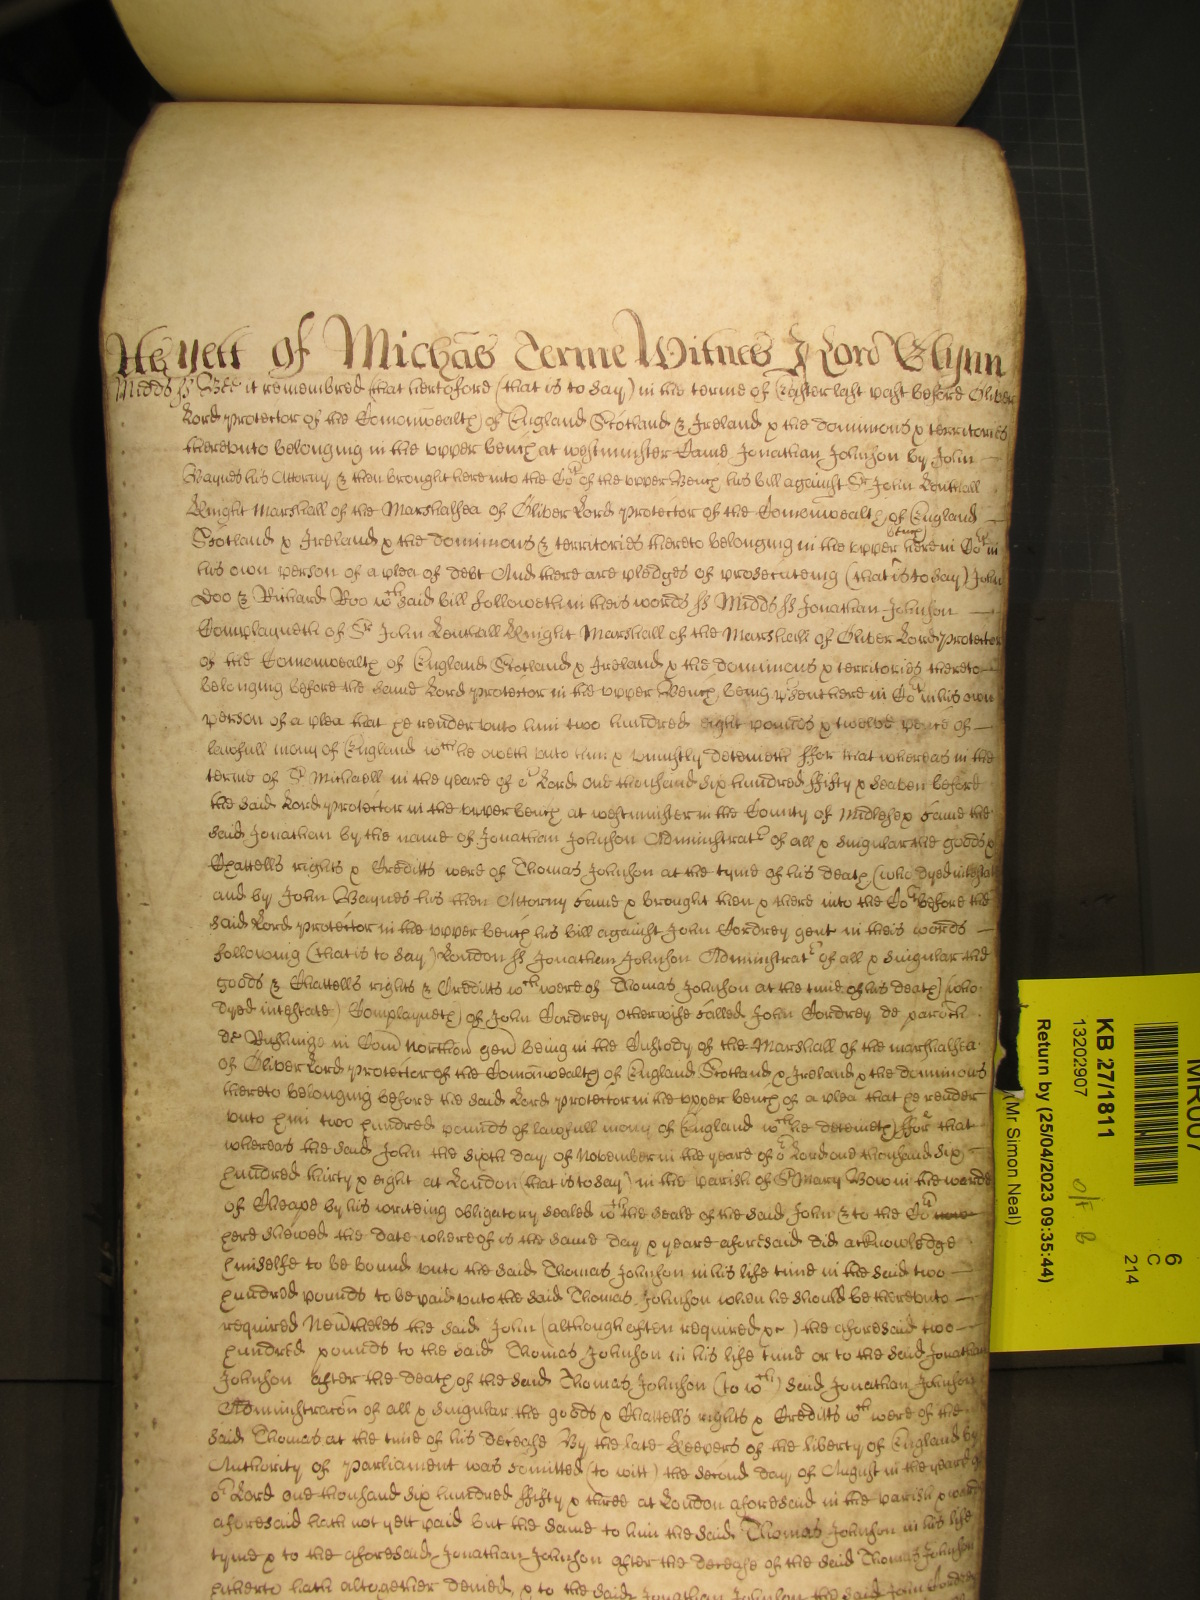 As yett of Michās Terme Witnes J Lord Glynn
Midds ss Bee it remembred that heretofore (that is to say) in the terme of Easter last past before Oliver
Lord Protector of the Comonwealth of England Scotland & Ireland & the dominions & territories
thereunto belonging in the upper bench at westminster Came Jonathan Johnson by John
Baynes his Attorny & then brought here into the Cort of the upper Bench his bill against Sr John Lenthall
Knight Marshall of the Marshalsea of Oliver Lord Protector of the Comonwealth of England
Scotland & Ireland & the dominions & territories thereto belonging in the upper bench here in Cort in
his own person of a plea of debt And there are pledges of prosecuteing (that is to say) John
Doo & Richard Roo wch said bill followeth in theis words ss Midds ss Jonathan Johnson
Complayneth of Sr John Lenthall Knight Marshall of the Marshalsie of Oliver Lord Protector
of the Comonwealth of England Scotland & Ireland & the dominions & territories thereto
belonging before the same Lord protector in the upper Bench being psent here in Cort in his own
person of a plea that he render unto him two hundred eight pounds & twelve pence of
lawfull mony of England wch he oweth unto him & uniustly deteineth ffor that whereas in the
terme of St Michaell in the yeare of or Lord one thousand six hundred ffifty & seaven before
the said Lord protector in the upper bench at westminster in the County of Midlesex Came the
said Jonathan by the name of Jonathan Johnson Administratr of all & singular the goods &
Chattells rights & Creditts were of Thomas Johnson at the tyme of his death (who dyed intestat
and by John Baynes his then Attorny came & brought then & there into the Cort before the
said Lord protector in the upper bench his bill against John Cordrey gent in theis words
following (that is to say) London ss Jonathan Johnson Administratr of all & singular the
goods & Chattells rights & Creditts wch were of Thomas Johnson at the time of his death (who
dyed intestate) Complayneth of John Cordrey otherwise called John Cordrey de paroch
de in Com Northton gen being in the Custody of the Marshall of the marshalsea
of Oliver Lord Protector of the Comonwealth of England Scotland & Ireland & the dominions
thereto belonging before the said Lord protector in the upper bench of a plea that he render
unto him two hundred pounds of lawfull mony of England wch he deteineth ffor that
whereas the said John the sixth day of November in the yeare of or Lord one thousand six
hundred thirty & eight at London (that is to say) in the parish of St Mary Bow in the warde
of Cheape by his writeing obligatory sealed wth the seale of the said John & to the Cort
here shewed the date whereof is the same day & yeare aforesaid did acknowledge
himselfe to be bound unto the said Thomas Johnson in his life time in the said two
hundred pounds to be paid unto the said Thomas Johnson when he should be thereunto
required Nevtheles the said John (although often required &c) the aforesaid two
hundred pounds to the said Thomas Johnson in his life time or to the said Jonathan
Johnson after the death of the said Thomas Johnson (to wch) said Jonathan Johnson
Administracon of all & singular the goods & Chattells rights & Creditts wch were of the
said Thomas at the time of his decease By the late Keepers of the liberty of England by
Authority of Parliament was comitted (to witt) the second day of August in the yeare of
or Lord one thousand six hundred ffifty & three at London aforesaid in the parish & ward
aforesaid hath not yett paid but the same to him the said Thomas Johnson in his life
tyme & to the aforesaid Jonathan Johnson after the decease of the said Thomas Johnson
hitherto hath altogether denied & to the said Jonathan Johnson the said John Cordrey
MR007
6
C
214
KB 27/1811
13202907
o/f B
Return by (25/04/2023 09:35:44)
(Mr Simon Neal)